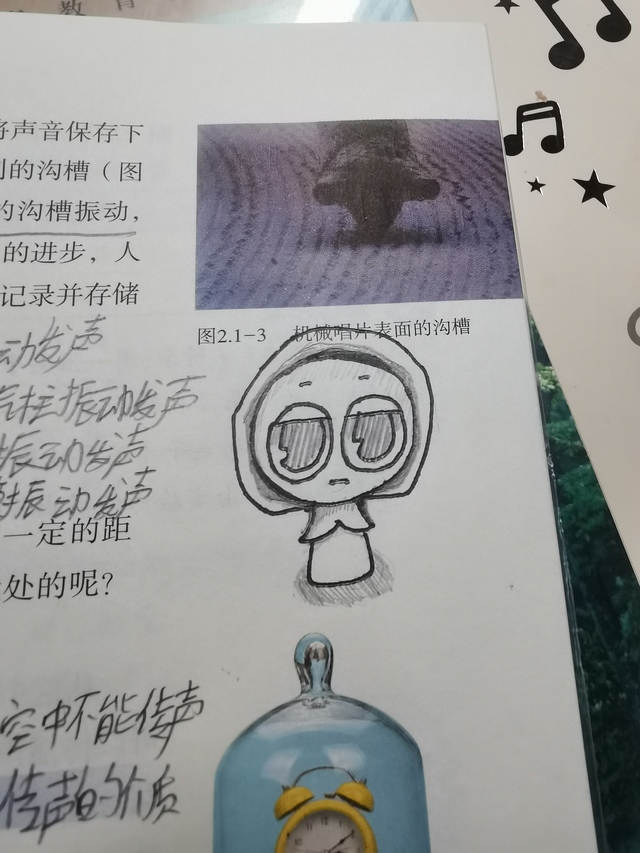 教育
将声音保存下
的沟槽（图
的沟槽振动，
的进步，人
记录并存储
图2.1-3 机械唱片表面的沟槽
动发声
气柱振动发声
振动发声
振动发声
一定的距
处的呢？
空中不能传声
传声的介质